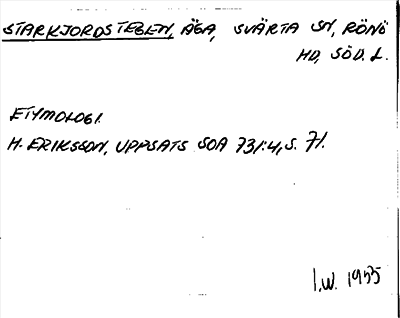 STARKJORDSTEGEN, ÄGA, SVÄRTA SN, RÖNÖ
HD, SÖD. L.
ETYMOLOGI.
H. ERIKSSON, UPPSATS SOA 731:4, S. 71.
I.W. 1955